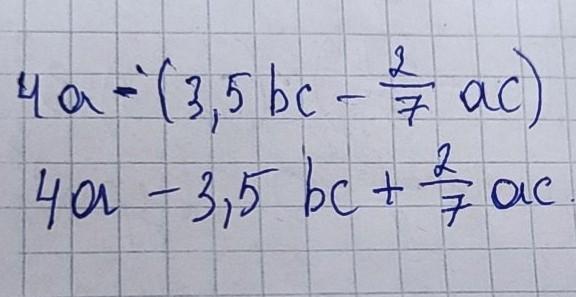 4a - (3,5 bc - 2/7 ac)
4a - 3,5 bc + 2/7 ac.